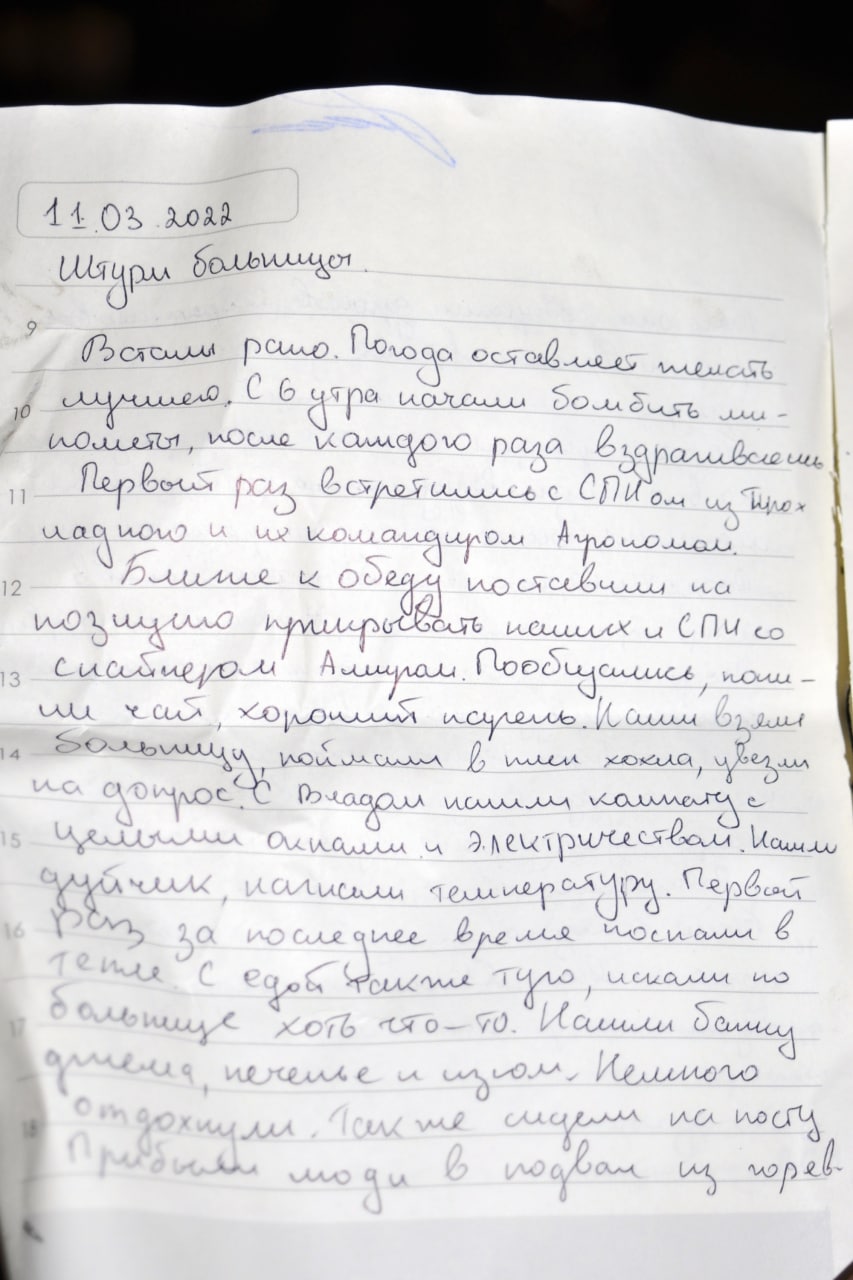 11.03.2022
Штурм больницы.
9
Встали рано. Погода оставляет желать
10 лучшего. С 6 утра начали бомбить ми-
нометы, после каждого раза вздрагиваешь
11 Первый раз встретились с СПН ом из Прох
ладного и их командиром Агрономом.
12 Ближе к обеду поставили на
позицию прикрывать наших и СПН со
13 снайпером Амиром. Пообщались, попи-
ли чай, хороший парень. Наши взяли
14 больницу, поймали в плен хохла, увезли
на допрос. С Владом нашли комнату с
15 целыми окнами и электричеством. Нашли
дуйчик, нагнали температуру. Первый
16 раз за последнее время поспали в
тепле. С едой также туго, искали по
17 больнице хоть что-то. Нашли банку
джема, печенье и изюм. Немного
18 отдохнули. Также сидели на посту
Прибыли люди в подвал из горев-